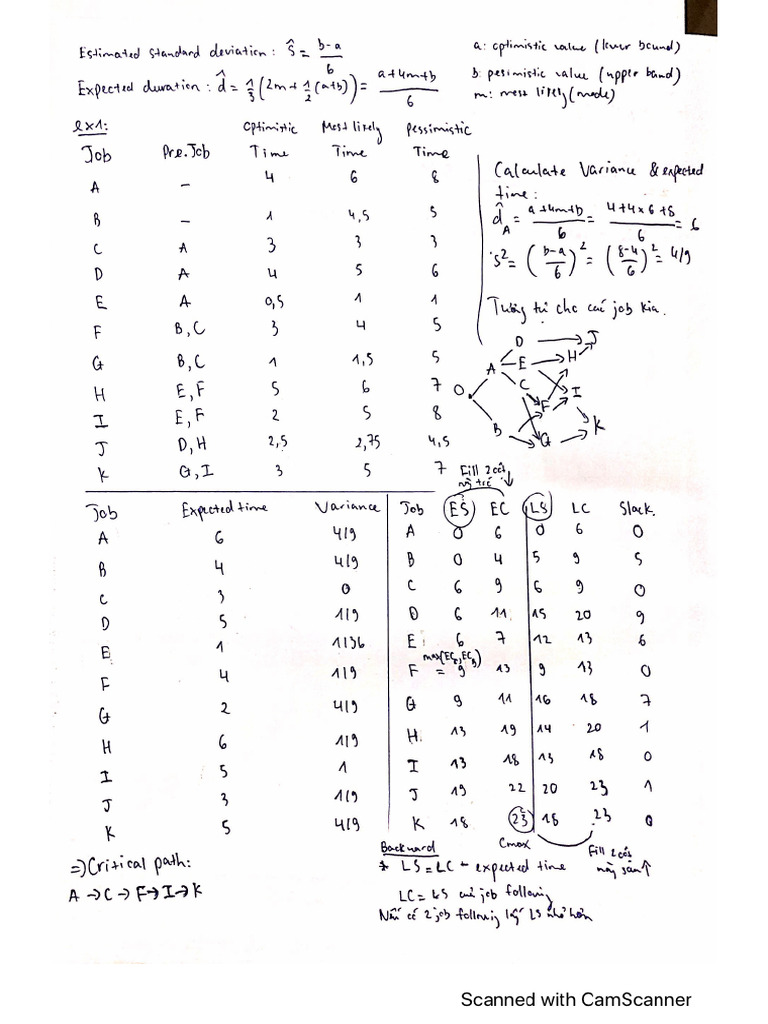 Estimated standard deviation: ŝ = b-a / 6
a: optimistic value (lower bound)
Expected duration: d̂ = 1/3 (2m + 1/2 (a+b)) = a+4m+b / 6
b: pesimistic value (upper band)
m: most likely (mode)
ex1:
Job Pre.Job Optimistic Time Most likely Time Pessimistic Time
A - 4 6 8
B - 1 4,5 5
C A 3 3 3
D A 4 5 6
E A 0,5 1 1
F B,C 3 4 5
G B,C 1 1,5 5
H E,F 5 6 7
I E,F 2 5 8
J D,H 2,5 2,75 4,5
K G,I 3 5 7
Calculate Variance & expected
time:
d̂A = a+4m+b / 6 = 4+4x6+8 / 6 = 6
s² = (b-a / 6)² = (8-4 / 6)² = 4/9
Tương tự cho các job kia.
O A B C D E F G H I J K
Job Expected time Variance
A 6 4/9
B 4 4/9
C 3 0
D 5 1/9
E 1 1/36
F 4 1/9
G 2 4/9
H 6 1/9
I 5 1
J 3 1/9
K 5 4/9
=) Critical path:
A → C → F → I → K
Fill 2 cột
này trc ↓
Job ES EC LS LC Slack.
A 0 6 0 6 0
B 0 4 5 9 5
C 6 9 6 9 0
D 6 11 15 20 9
E 6 7 12 13 6
max(EC, EC)
F = 9 13 9 13 0
G 9 11 16 18 7
H 13 19 14 20 1
I 13 18 13 18 0
J 19 22 20 23 1
K 18 23 18 23 0
Cmax
Fill 2 cột
này sau ↑
Backward
* LS = LC - expected time
LC = LS của job following
Nếu có 2 job following lấy LS nhỏ hơn
Scanned with CamScanner